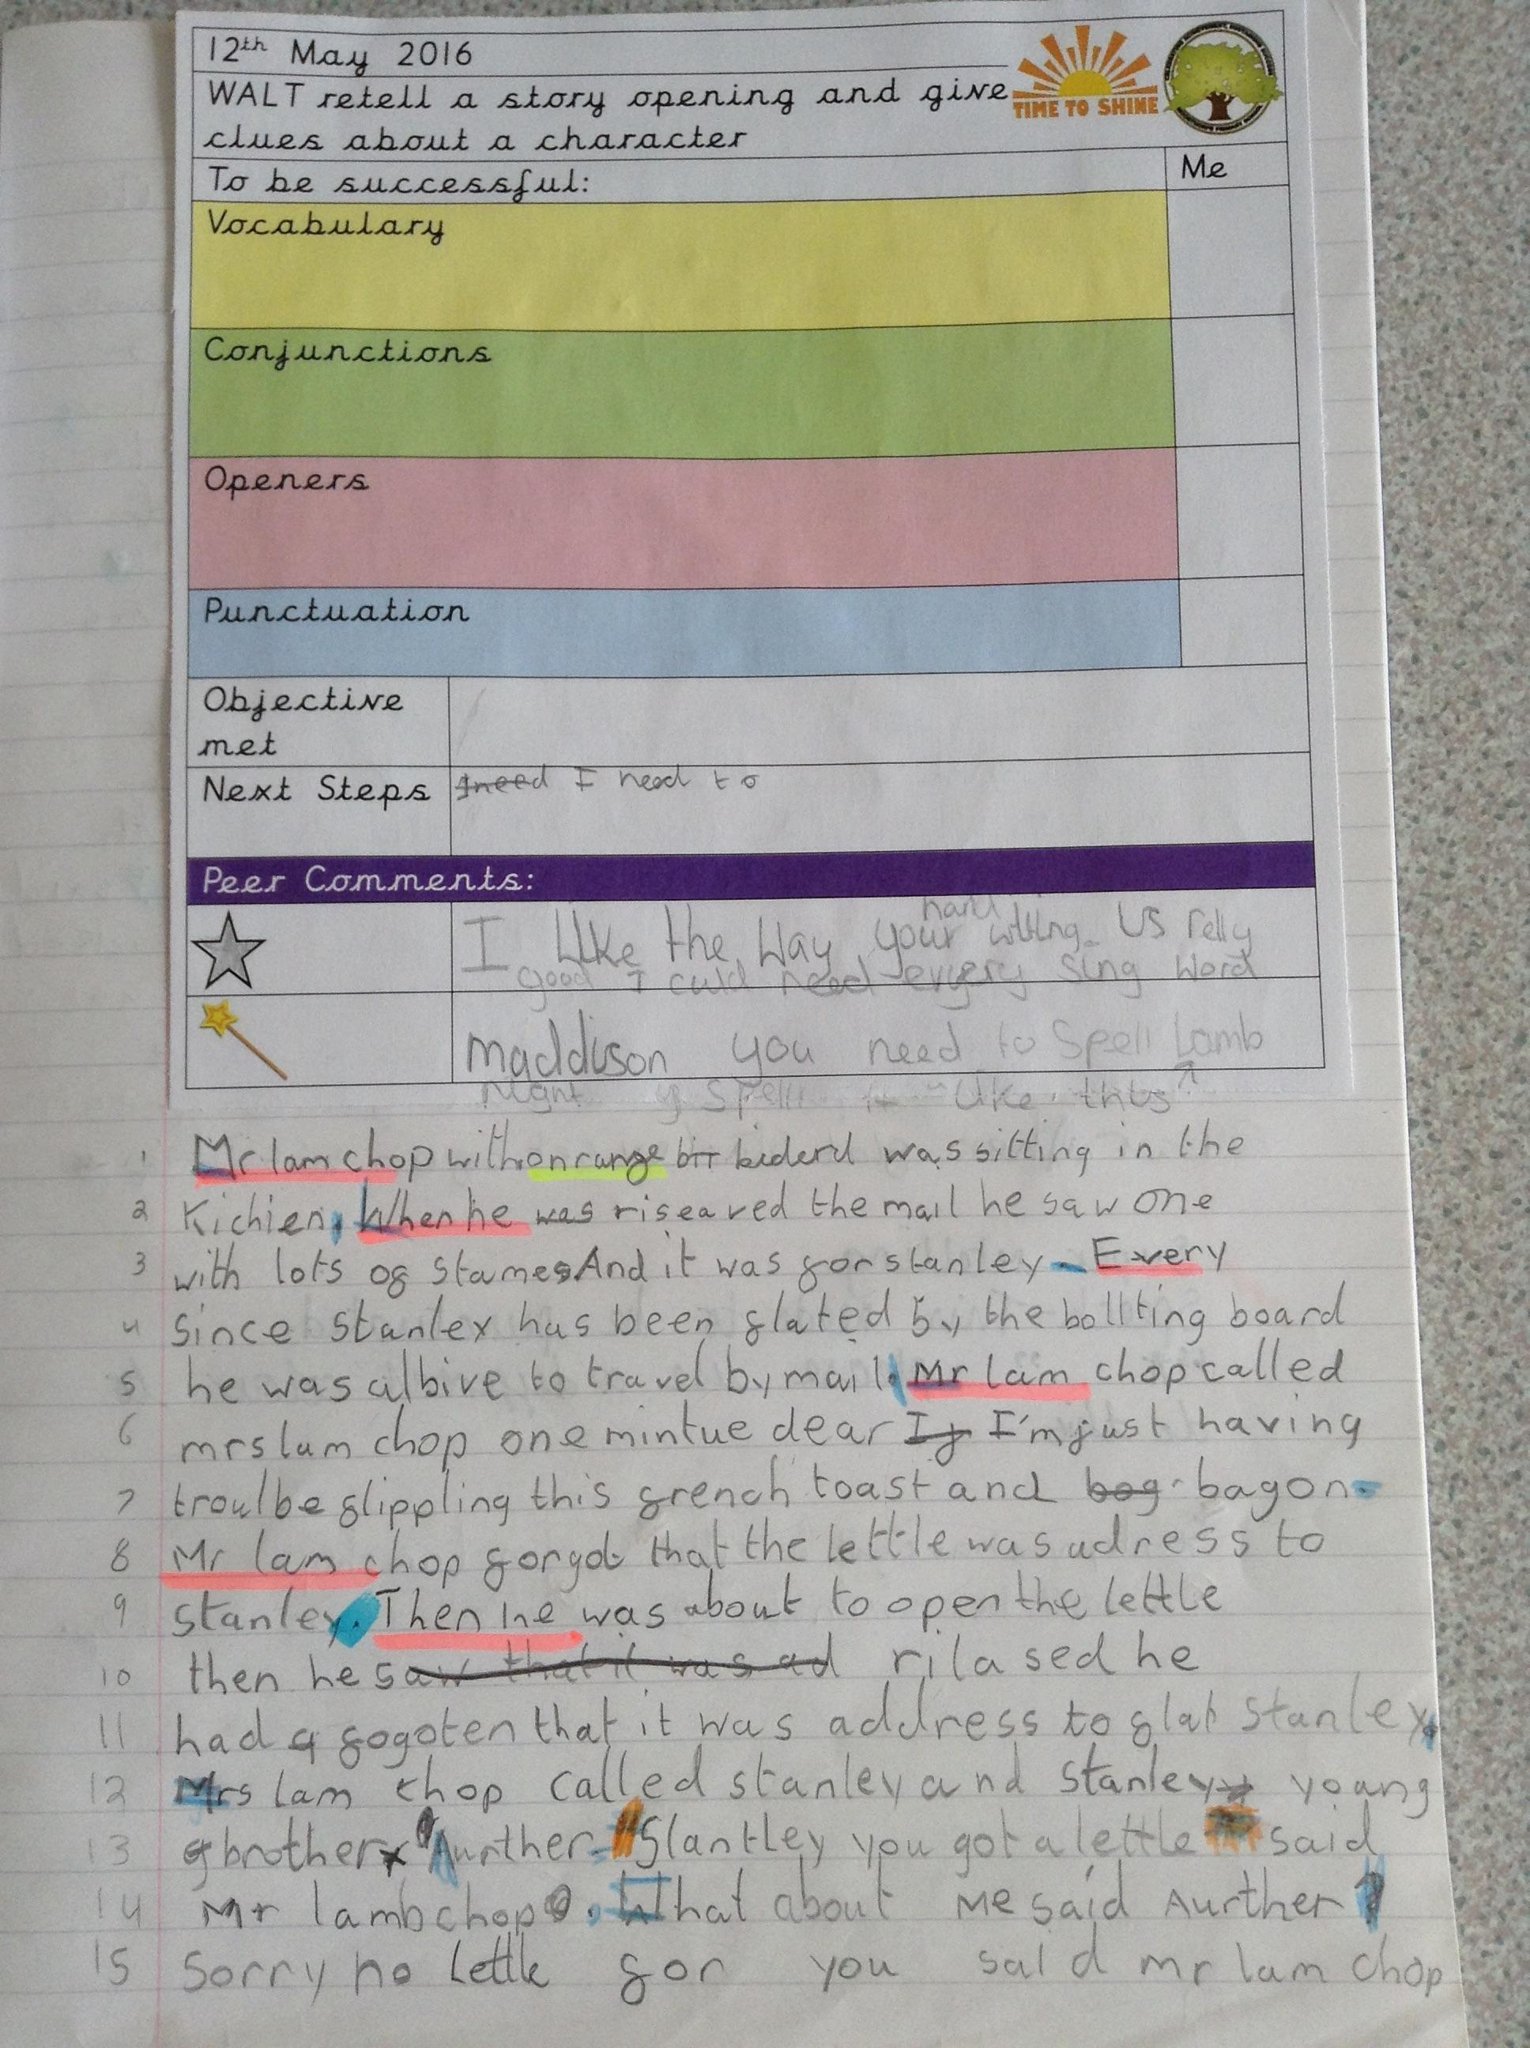 12th May 2016
WALT retell a story opening and give
clues about a character
TIME TO SHINE
To be successful:
Me
Vocabulary
Conjunctions
Openers
Punctuation
Objective
met
Next Steps
Ineed I need to
Peer Comments:
hand
I like the way your writing is relly
good I culd need every sing word
maddison you need to spell Lamb
right spell it like this
1 Mr lam chop with onrange biderd was sitting in the
2 Kichien, When he was riseaved the mail he saw one
3 with lots of stames. And it was for stanley. Every
4 since stanley has been flated by the bollting board
5 he was albive to travel by mail. Mr lam chop called
6 mrs lam chop one mintue dear If I'm just having
7 troulbe flippling this french toast and bog bagon.
8 Mr lam chop forgot that the lettle was adress to
9 stanley. Then he was about to open the lettle
10 then he saw that it was ad rilased he
11 had fogoten that it was address to flat stanley.
12 Mrs lam chop called stanley and stanley young
13 brother Aurther. Slantley you got a lettle said
14 Mr lambchop. What about me said Aurther?
15 Sorry no lettle for you said mr lam chop